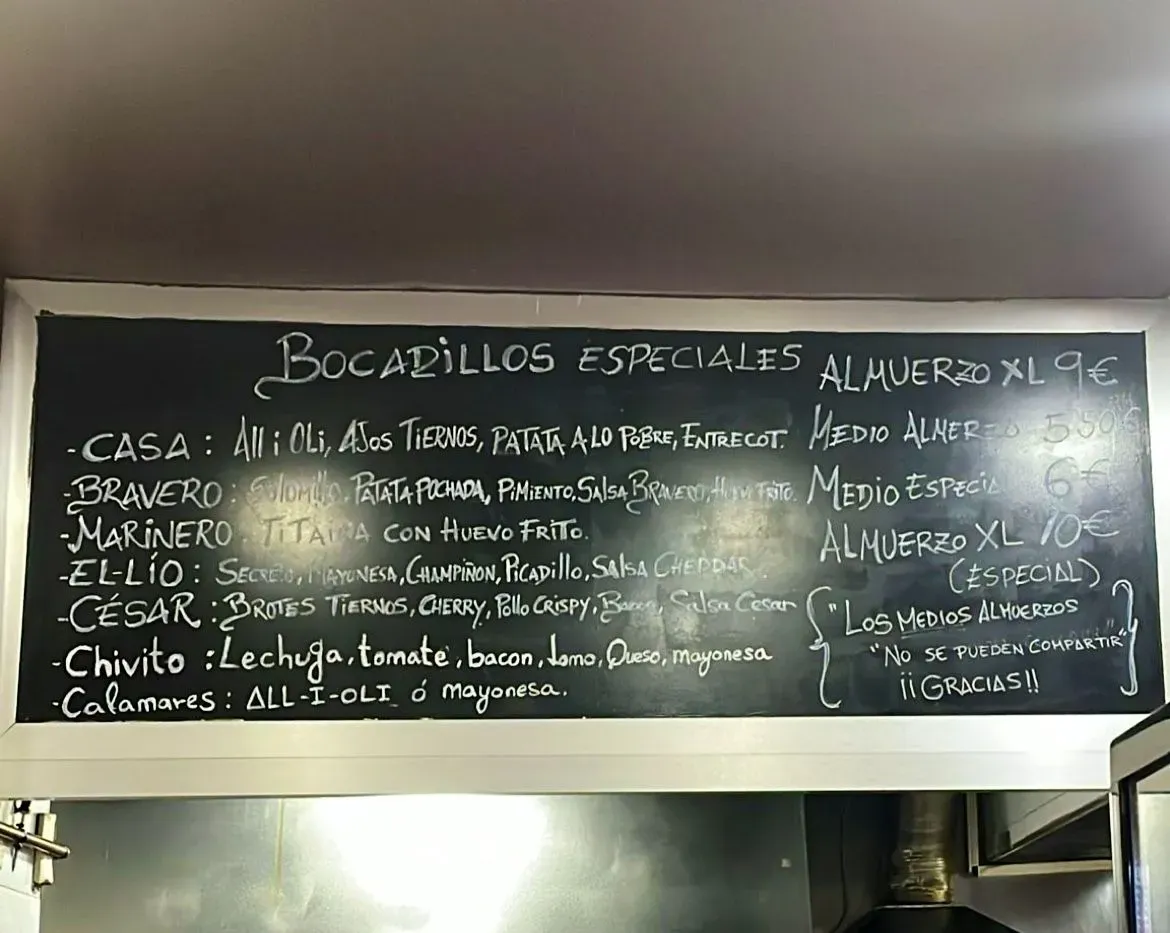 BOCADILLOS ESPECIALES
-CASA: All i OLi, AJOS TIERNOS, PATATA A LO POBRE, ENTRECOT.
-BRAVERO: Solomillo, PATATA POCHADA, PIMIENTO, SALSA BRAVERO, HUEVO FRITO.
-MARINERO: TITAINA CON HUEVO FRITO.
-EL-LÍO: SECRETO, MAYONESA, CHAMPIÑON, PICADILLO, SALSA CHEDDAR.
-CÉSAR: BROTES TIERNOS, CHERRY, Pollo CRISPY, Bacon, Salsa Cesar
-Chivito: Lechuga, tomate, bacon, Lomo, Queso, mayonesa
-Calamares: ALL-I-OLI ó mayonesa.
ALMUERZO XL 9€
MEDIO ALMERZO 5'50€
MEDIO ESPECIAL 6€
ALMUERZO XL 10€
(ESPECIAL)
"LOS MEDIOS ALMUERZOS
"NO SE PUEDEN COMPARTIR"
¡¡GRACIAS!!